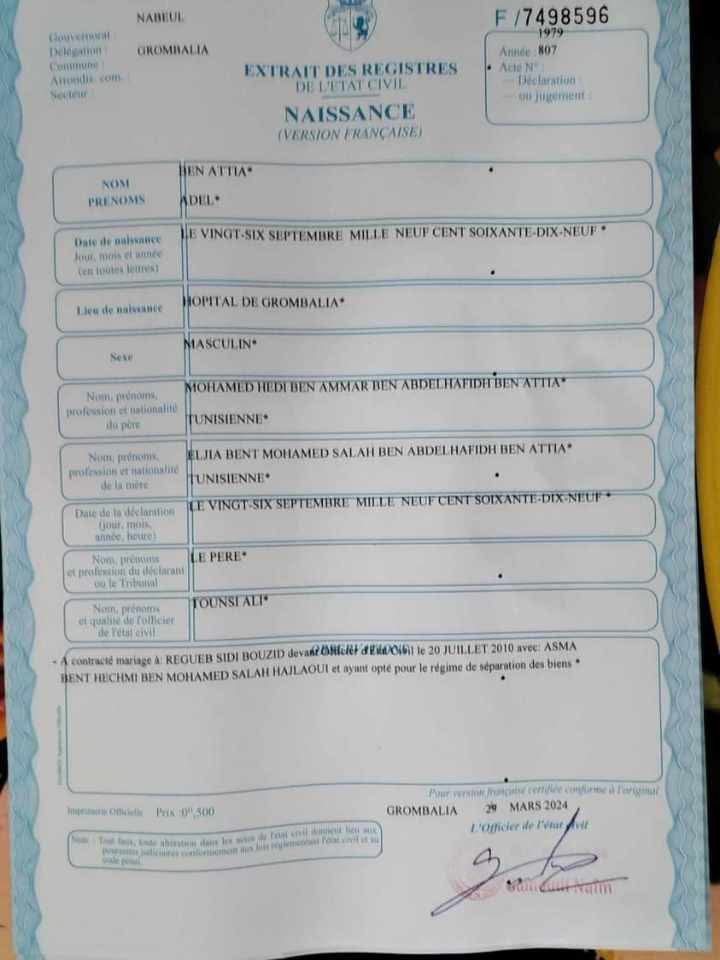 NABEUL
Gouvernorat :
Délégation : GROMBALIA
Commune :
Arrondis. com. :
Secteur :
F /7498596
1979
Année : 807
Acte N° :
— Déclaration :
— ou jugement :
EXTRAIT DES REGISTRES
DE L'ETAT CIVIL
NAISSANCE
(VERSION FRANÇAISE)
NOM
PRENOMS
BEN ATTIA*
ADEL*
Date de naissance
Jour, mois et année
(en toutes lettres)
LE VINGT-SIX SEPTEMBRE MILLE NEUF CENT SOIXANTE-DIX-NEUF *
Lieu de naissance
HOPITAL DE GROMBALIA*
Sexe
MASCULIN*
Nom, prénoms,
profession et nationalité
du père
MOHAMED HEDI BEN AMMAR BEN ABDELHAFIDH BEN ATTIA*
TUNISIENNE*
Nom, prénoms,
profession et nationalité
de la mère
ELJIA BENT MOHAMED SALAH BEN ABDELHAFIDH BEN ATTIA*
TUNISIENNE*
Date de la déclaration
(jour, mois,
année, heure)
LE VINGT-SIX SEPTEMBRE MILLE NEUF CENT SOIXANTE-DIX-NEUF *
Nom, prénoms
et profession du déclarant
ou le Tribunal
LE PERE*
Nom, prénoms
et qualité de l'officier
de l'état civil
TOUNSI ALI*
OBSERVATIONS
- A contracté mariage à: REGUEB SIDI BOUZID devant Officier d'Etat Civil le 20 JUILLET 2010 avec: ASMA
BENT HECHMI BEN MOHAMED SALAH HAJLAOUI et ayant opté pour le régime de séparation des biens *
Pour version française certifiée conforme à l'original
Imprimerie Officielle Prix :0ᴰᵗ,500
GROMBALIA 29 MARS 2024
L'Officier de l'état civil
Note : Tout faux, toute altération dans les actes de l'état civil donnent lieu aux
poursuites judiciaires conformément aux lois réglementant l'état civil et au
code pénal.
Naïm